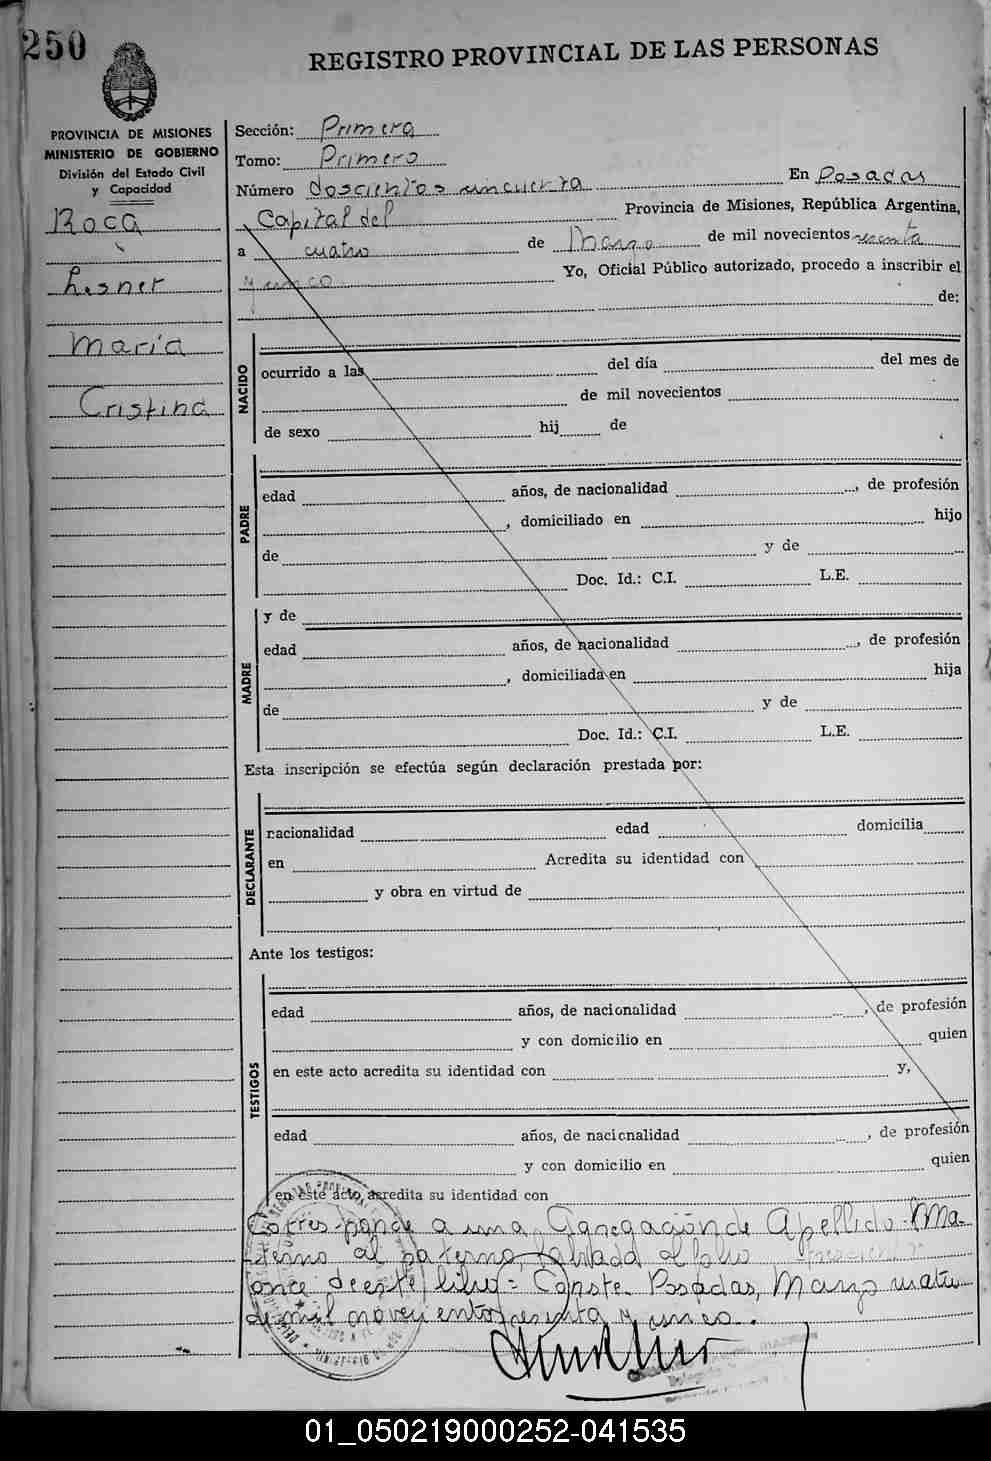 250
REGISTRO PROVINCIAL DE LAS PERSONAS
PROVINCIA DE MISIONES
MINISTERIO DE GOBIERNO
División del Estado Civil
y Capacidad
Roca
Lesner
Maria
Cristina
Sección: Primera
Tomo: Primero
Número doscientos cincuenta En Posadas
Capital del Provincia de Misiones, República Argentina,
a cuatro de Marzo de mil novecientos sesenta
y cinco Yo, Oficial Público autorizado, procedo a inscribir el
de:
NACIDO
ocurrido a las del día del mes de
de mil novecientos
de sexo hij de
PADRE
edad años, de nacionalidad , de profesión
, domiciliado en hijo
de y de
Doc. Id.: C.I. L.E.
MADRE
y de
edad años, de nacionalidad , de profesión
, domiciliada en hija
de y de
Doc. Id.: C.I. L.E.
Esta inscripción se efectúa según declaración prestada por:
DECLARANTE
nacionalidad edad domicilia
en Acredita su identidad con
y obra en virtud de
Ante los testigos:
TESTIGOS
edad años, de nacionalidad , de profesión
y con domicilio en quien
en este acto acredita su identidad con y,
edad años, de nacionalidad , de profesión
y con domicilio en quien
en este acto acredita su identidad con
Corresponde a una Apellido Ma-
terno al paterno, al folio
once de este libro = Conste. Posadas, Marzo cuatro
de mil novecientos sesenta y cinco.
01_050219000252-041535